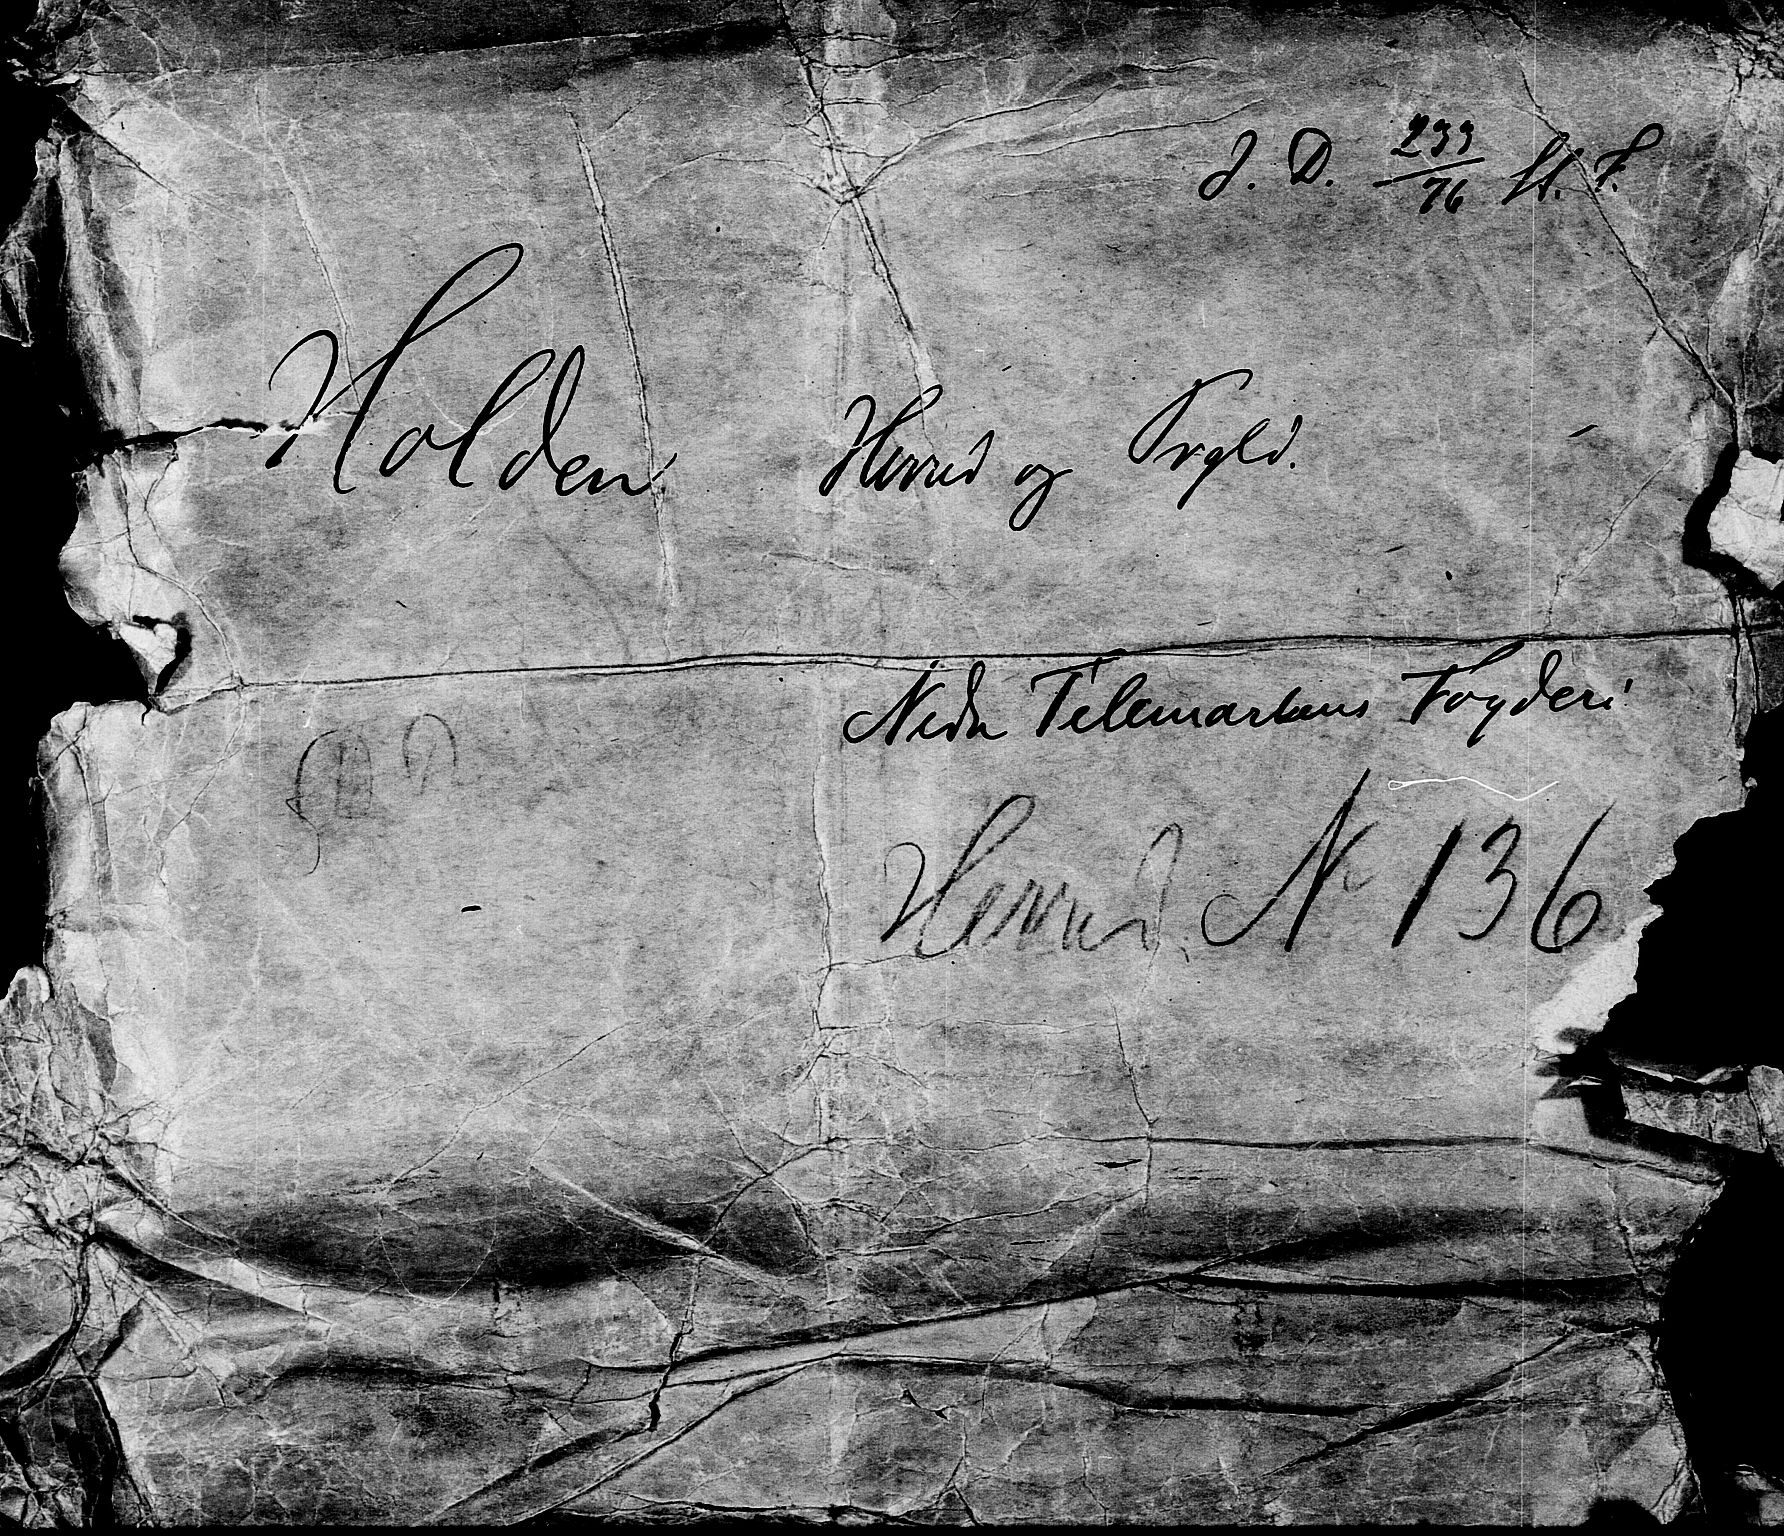 J. D. 233/76 St. F.
Holden Herred og Prgld.
Nedre Telemarkens Fogderi
Herred No 136